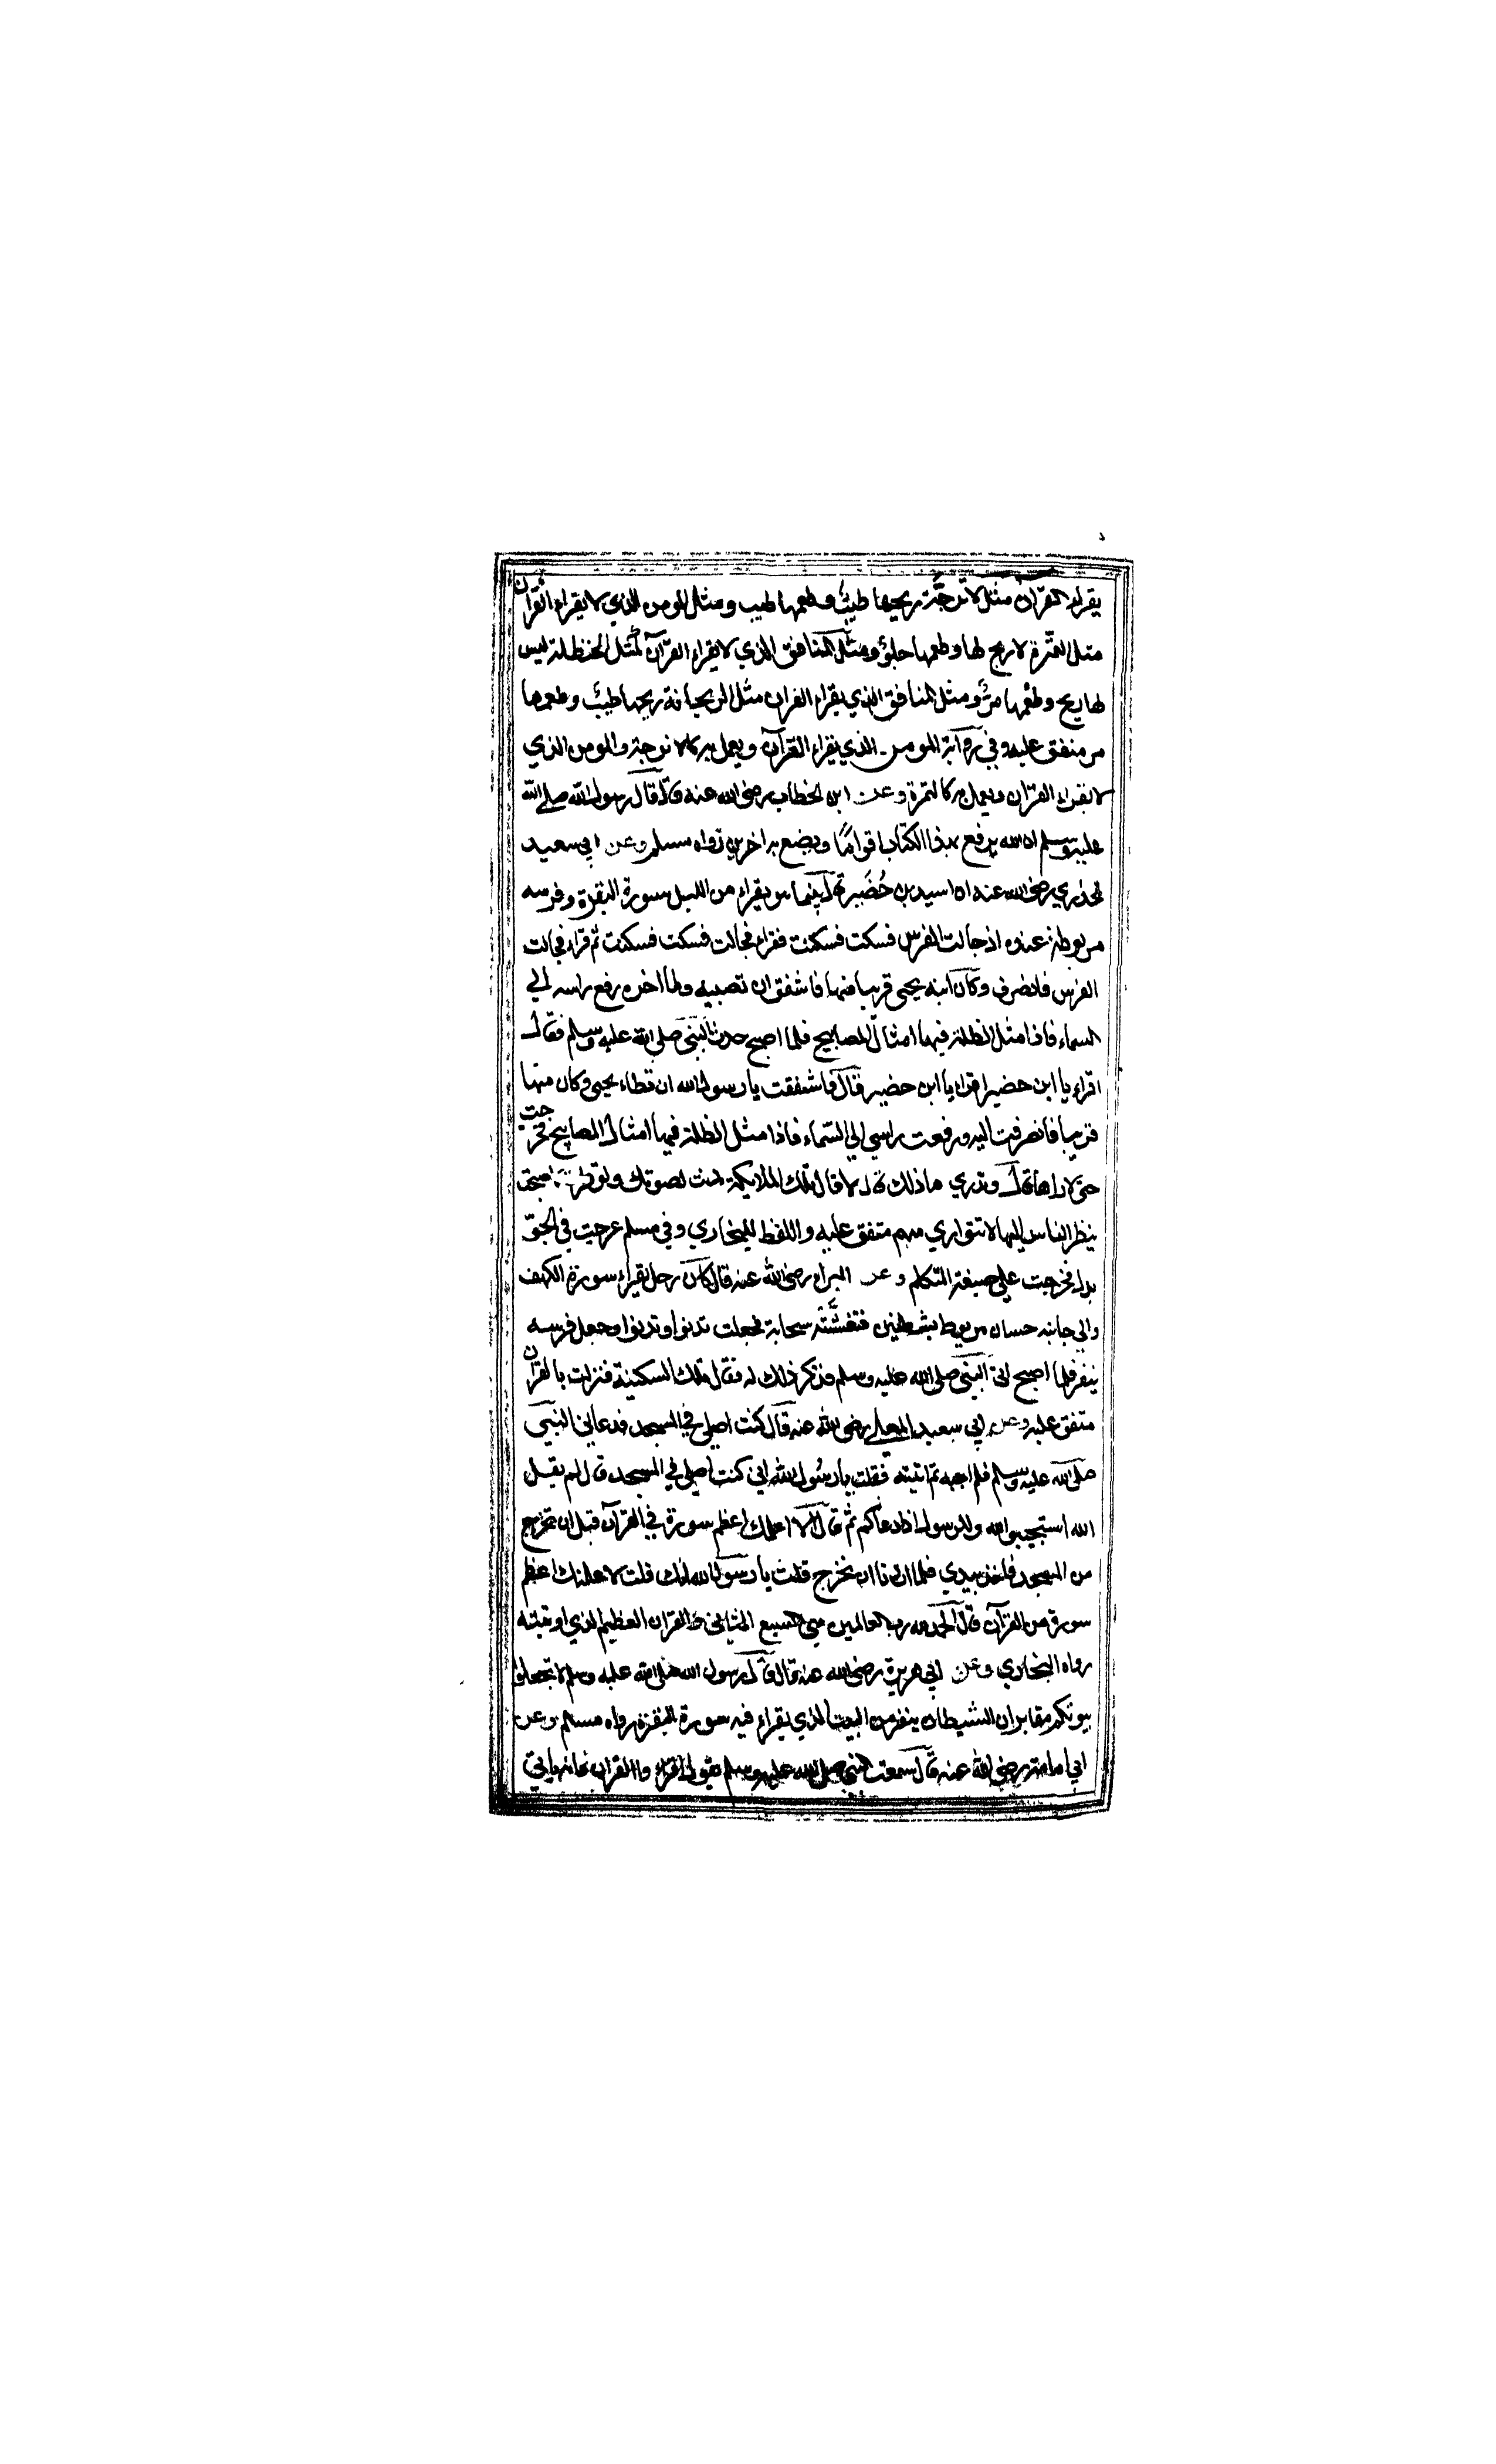 يقراء القرآن مثل الاترجّة ريحها طيبٌ وطعمها طيب ومثل المومن الذي لا يقراء القرآن
مثل التمرة لا ريح لها وطعمها حلوٌ ومثل المنافق الذي لا يقراء القرآن كمثل الحنظلة ليس
لها ريح وطعمها مرٌ ومثل المنافق الذي يقراء القران مثل الريحانة ريحها طيبٌ وطعمها
مر متفق عليه وفي رواية المومن الذي يقراء القرآن ويعمل به كالاترجة والمومن الذي
لا يقراء القران ويعمل به كالتمرة وعن ابن الخطاب رضي الله عنه قال قال رسول الله صلى الله
عليه وسلم ان الله يرفع بهذا الكتاب اقوامًا ويضع به اخرين رواه مسلم وعن ابي سعيد
الخدري رضي الله عنه ان اسيد بن حُضَير قال بينما يقراء من الليل سورة البقرة وفرسه
مربوطة عنده اذ جالت الفرس فسكت فسكنت فقراء فجالت فسكت فسكنت ثم قراء فجالت
الفرس فانصرف وكان ابنه يحيى قريبا منها فاشفق ان تصيبه ولما اخره رفع راسه الي
السماء فاذا مثل الظلة فيها امثال المصابيح فلما اصبح حدث النبي صلى الله عليه وسلم فقال
اقراء يا ابن حضير اقراء يا ابن حضير قال فاشفقت يا رسول الله ان تطاء يحيى وكان منها
قريبا فانصرفت اليه ورفعت راسي الي السّماء فاذا مثل الظلة فيها امثال المصابيح فخرجت
حتى لا اراها قال وتدري ما ذلك قال لا قال تلك الملايكة دنت لصوتك ولو قرات اصبحت
ينظر الناس اليها لا تتواري منهم متفق عليه واللفظ للبخاري وفي مسلم عرجت في الجوّ
بدل فخرجت علي صيغة المتكلم وعن البراء رضي الله عنه قال كان رجل يقراء سورة الكهف
والي جانبه حصان مربوط بشطنين فتغشَّتْه سحابة فجعلت تدنوا وتدنوا وجعل فرسه
ينفر فلما اصبح اتى النبي صلى الله عليه وسلم فذكر ذلك له فقال تلك السكينة تنزلت بالقرآن
متفق عليه وعن ابي سعيد المعلى رضي الله عنه قال كنت اصلي في المسجد فدعاني النبي
صلى الله عليه وسلم فلم اجبه ثم اتيته فقلت يا رسُول الله اني كنت اصلي في المسجد قال الم يقل
الله استجيبوا لله وللرسول اذا دعاكم ثم قال الا اعلمك اعظم سورة في القرآن قبل ان تخرج
من المسجد فاخذ بيدي فلما اردنا ان نخرج قلت يا رسول الله انك قلت لاعلمنك اعظم
سورة من القرآن قال الحمد لله رب العالمين هي السبع المثاني والقران العظيم الذي اوتيته
رواه البخاري وعن ابي هريرة رضي الله عنه قال قال رسول الله صلى الله عليه وسلم لا تجعلوا
بيوتكم مقابر ان الشيطان ينفر من البيت الذي يقراء فيه سورة البقرة رواه مسلم وعن
ابي امامة رضي الله عنه قال سمعت النبي صلى الله عليه وسلم يقول اقراء وا القران فانه ياتي